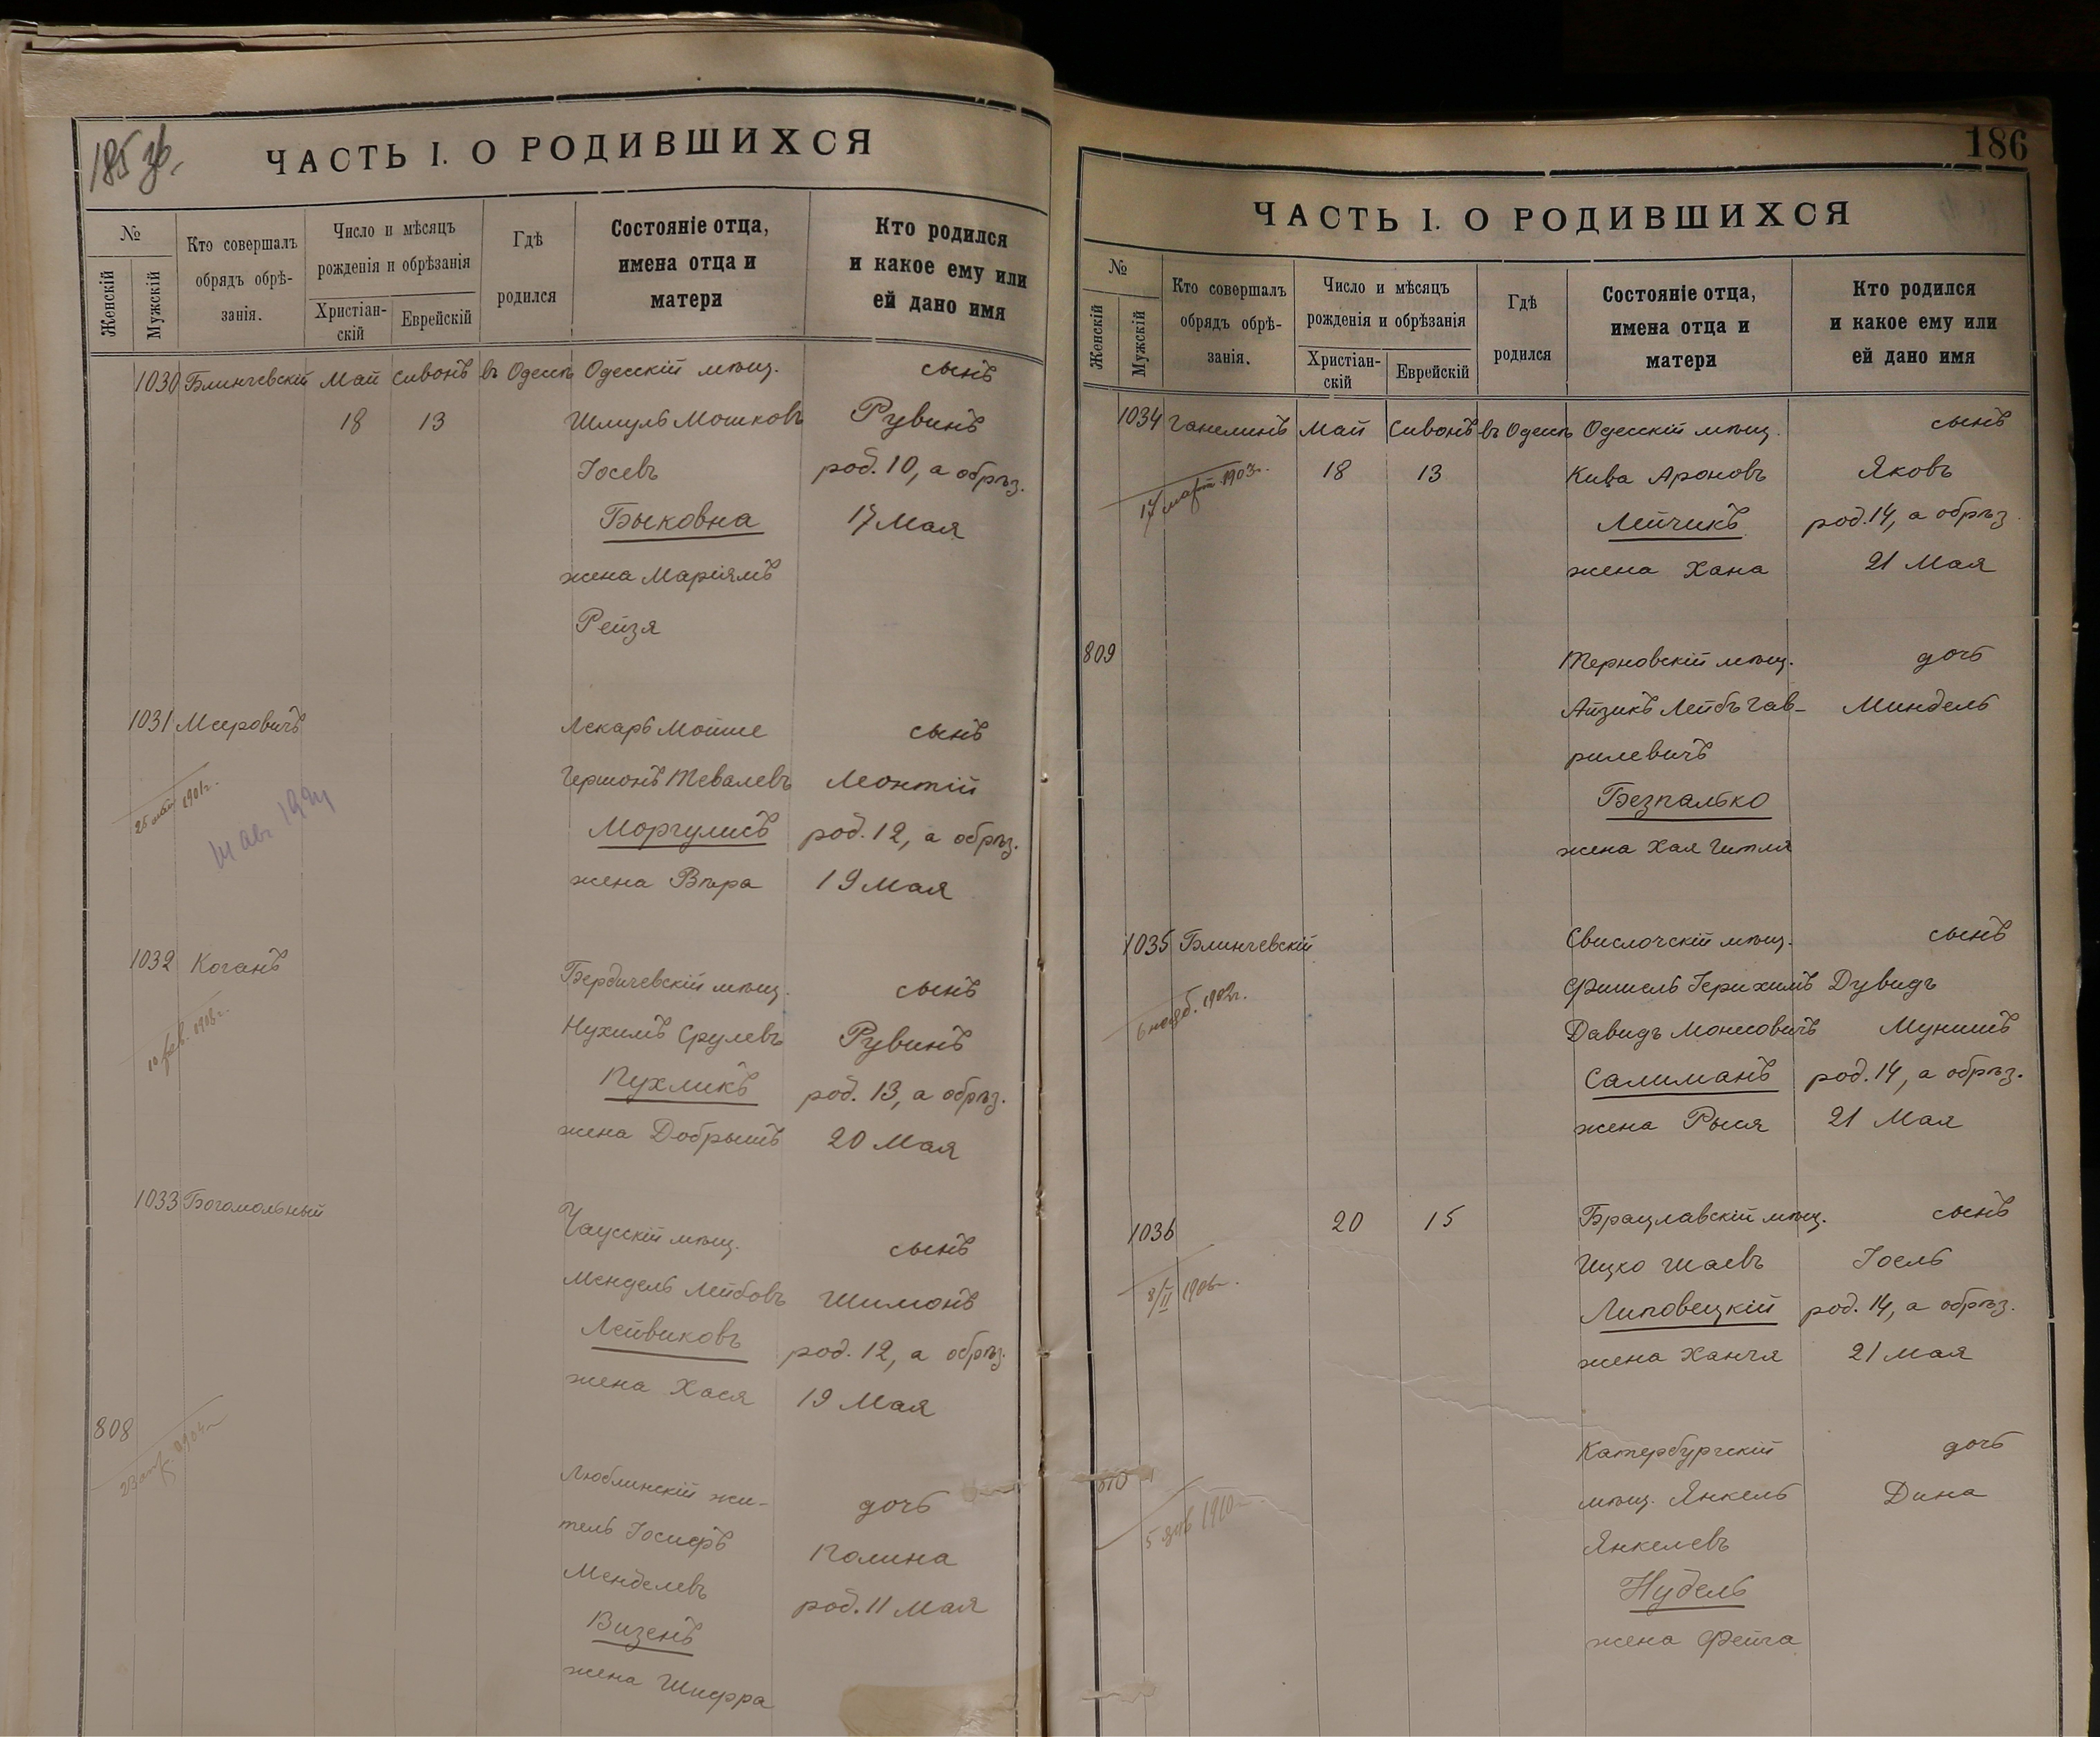 185 зв.
ЧАСТЬ I. О РОДИВШИХСЯ
№
Женскій
Мужскій
Кто совершалъ
обрядъ обрѣ-
занія.
Число и мѣсяцъ
рожденія и обрѣзанія
Христіан-
скій
Еврейскій
Гдѣ
родился
Состояніе отца,
имена отца и
матери
Кто родился
и какое ему или
ей дано имя
1030 Блинчевскій Май Сивонъ въ Одессѣ Одесскій мѣщ. сынъ
18 13 Шмуль Мошковъ Рувинъ
Іосевъ род. 10, а обрѣз.
Быковна 17 Мая
жена Маріямъ
Рейзя
1031 Мееровичъ Лекарь Мойше сынъ
Гершонъ Тевалевъ Леонтій
25 май 1901г.
Моргулисъ род. 12, а обрѣз.
жена Вѣра 19 Мая
1032 Коганъ Бердичевскій мѣщ. сынъ
Нухимъ Срулевъ Рувинъ
10 фев. 1906г.
Пухликъ род. 13, а обрѣз.
жена Добрышъ 20 Мая
1033 Богомольный Чаусскій мѣщ. сынъ
Мендель Лейбовъ Шимонъ
Лейвиковъ род. 12, а обрѣз.
жена Хася 19 Мая
808 Люблинскій жи- дочь
тель Іосифъ Полина
Менделевъ род. 11 Мая
Визенъ
жена Шифра
186
ЧАСТЬ I. О РОДИВШИХСЯ
№
Женскій
Мужскій
Кто совершалъ
обрядъ обрѣ-
занія.
Число и мѣсяцъ
рожденія и обрѣзанія
Христіан-
скій
Еврейскій
Гдѣ
родился
Состояніе отца,
имена отца и
матери
Кто родился
и какое ему или
ей дано имя
1034 Ганелинъ Май Сивонъ въ Одессѣ Одесскій мѣщ. сынъ
18 13 Кива Ароновъ Яковъ
17 март. 1903г.
Лейчикъ род. 14, а обрѣз.
жена Хана 21 Мая
809 Терновскій мѣщ. дочь
Айзикъ Лейбъ Гав- Миндель
рилевичъ
Безпалько
жена Хая Гитля
1035 Блинчевскій Свислочскій мѣщ. сынъ
Фишель Іерихимъ Дувидъ
6 нояб. 1902г.
Давидъ Монсовичъ Мунишъ
Салиманъ род. 14, а обрѣз.
жена Рыся 21 Мая
1036 20 15 Брацлавскій мѣщ. сынъ
Ицко Шаевъ Іоель
8/II 1906г.
Липовецкій род. 14, а обрѣз.
жена Ханя 21 Мая
810 Катербургскій дочь
мѣщ. Янкель Дина
5 янв 1910г.
Янкелевъ
Нудель
жена Фейга